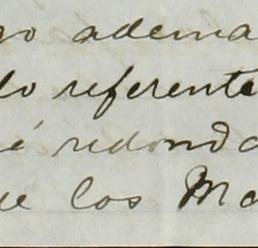 adema
lo referente
é redond
ue los Ma